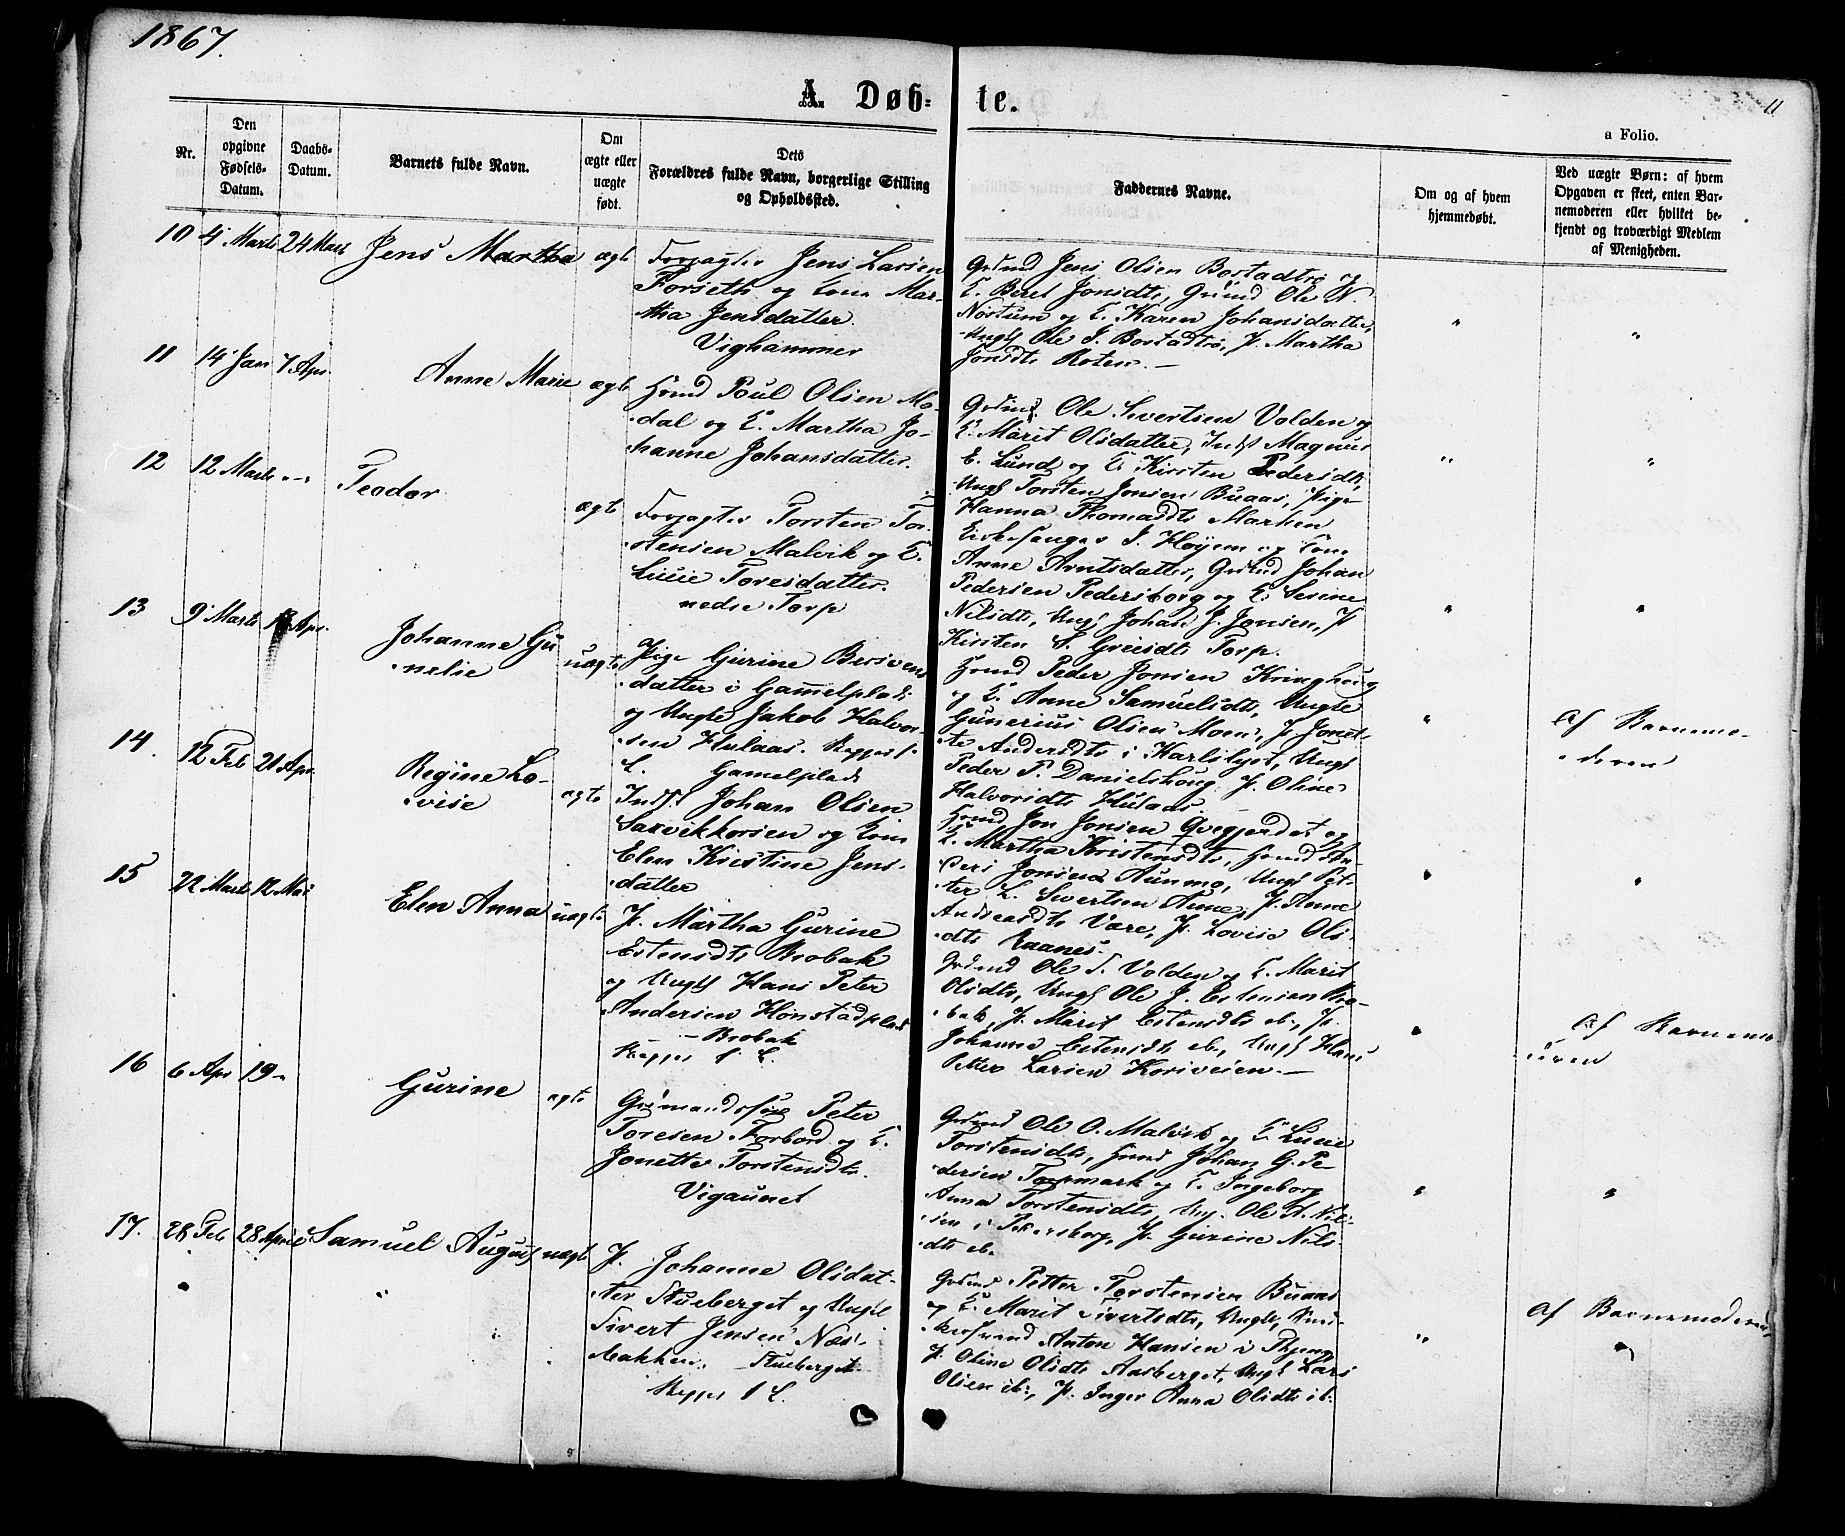 1867.
A Døb-te.
11
a Folio.
Nr.
Den opgivne Fødsels-Datum.
Daabs-Datum.
Barnets fulde Navn.
Om ægte eller uægte født.
Dets Forældres fulde Navn, borgerlige Stilling og Opholdssted.
Faddernes Navne.
Om og af hvem hjemmedøbt.
Ved uægte Børn: af hvem Opgaven er skeet, enten Barnemoderen eller hvilket bekjendt og troværdigt Medlem af Menigheden.
10 4 Marts 24 Mart Jens Martha ægte
Forpagter Jens Larsen
Forseth og Kone Mar-
tha Jensdatter.
Vighammer
Grdmd Jens Olsen Bostadtrø og
K. Beret Jonsdtr, Grdmd Ole N.
Nostum og K. Karen Johansdatter,
Ungk Ole J. Bostadtrø, P. Martha
Jonsdtr Roten. —
11 14 Jan 7 Apr. Anne Marie ægte
Hsmd Poul Olsen Mo-
dal og K. Martha Jo-
hanne Johansdatter.
Grdmd Ole Sivertsen Volden og
K. Marit Olsdatter, Indst Magnus
E. Lund og K. Kirsten Pedersdtr,
Ungk Torsten Jonsen Buaas, Pige
Hanna Thomasdtr Marken
12 12 Marts - Teodor ægte
Forpagter Torsten Tor-
stensen Malvik og K.
Lucie Toresdatter.
nedre Torp
Kirkesanger J. Høyem og Kone
Anne Arntsdatter, Grdmd Johan
Pedersen Pedersborg og K. Serine
Nilsdtr, Ungk Johan J. Jonsen, P.
Kirsten S. Torp.
13 9 Marts Apr. Johanne Gu-
nelie uægte
Pige Gurine
datter i Gamelplads
og Ungk Jakob Halvor-
sen Hulaas.
Gamelplads
Hsmd Peder Jonsen Kringhoug
og K. Anne Samuelsdtr, Ungk
Gunerius Olsen Moen, P. Jonet-
te Andersdtr i Karlslyst, Ungk
Peder P. Danielshoug, P. Oline
Halvorsdtr Hulaas
Af Barnemo-
deren
14. 12 Feb 21 Apr. Regine Lo-
vise ægte
Indst Johan Olsen
Saxvikkorsen og Kone
Elen Kristine Jens-
datter
Hsmd Jon Jonsen Qvegjerdet og
K. Martha Kristensdtr, Hsmd An-
ders Jonsen Aunmo, Ungk Pet-
ter L. Sivertsen Aune, P. Anne
Andreasdtr Være, P. Lovise Ols-
dtr Raanes.
15 22 Marts 12 Mai Elen Anna uægte
P. Martha Gurine
Estensdtr Brobak
og Ungk Hans Peter
Andersen Honstadplads
— Brobak
Grdmd Ole S. Volden og K. Marit
Olsdtr, Ungk Ole J. Estensen Bro-
bak, P. Marit Estensdtr eb., P.
Johanne Estensdtr eb., Ungk Hans
Petter Larsen Korsveien. —
Af Barnemo
deren
16 6 Apr 19 - Gurine ægte
Peter
Toresen Forbord og K.
Jonette Torstensdtr.
Vigaunet
Grdmd Ole O. Malvik og K. Lucie
Torstensdtr, Hsmd Johan G. Pe-
dersen Torpmark og K. Ingeborg
Anna Torstensdtr, Ung. Ole A. Nil-
sen i Pedersborg, P. Gurine Nils-
dtr eb.
17. 28 Feb 28 April Samuel August uægte
P. Johanne Olsdat-
ter Stueberget og Ungk
Sivert Jensen Næs-
bakken. — Stueberget
Grdmd Petter Torstensen Buaas
og K. Marit Sivertsdtr, Ungk,
Anton Hansen i
P. Oline Olsdtr Aasberget, Ungk Lars
Olsen ib., P. Inger Anna Olsdtr ib.
Af Barnemoderen